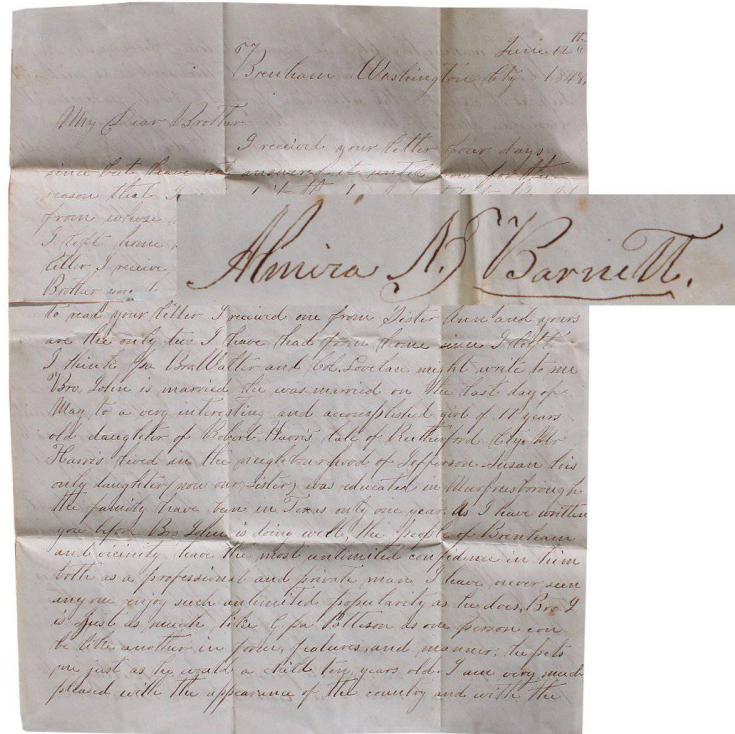 June 12th
Brenham Washington Cty 1848,
My Dear Brother
I received your letter four days
since but have not answered it until now for the
reason that I
from whose
I left home
letter I receive
Brother
Almira N. Barnett.
to read your letter I received one from Sister Ann and yours
are the only two I have had from home since I left
I think Bro Walter and Col. might write to me
Bro. John is married he was married on the last day of
May to a very interesting and accomplished girl of 17 years
old daughter of Robert Harris late of Rutherford Cty. Mr
Harris lived in the neighbourhood of Jefferson Susan his
only daughter (now our sister) was educated in Murfreesborough
the family have been in Texas only one year. As I have written
you before Bro John is doing well, the people of Brenham
and vicinity have the most unlimited confidence in him
both as a professional and private man, I have never seen
anyone enjoy such unlimited popularity as he does, Bro J
is just as much like as one person can
be like another in form, features, and manner; he pets
me just as he would a child ten years old. I am very much
pleased with the appearance of the country and with the